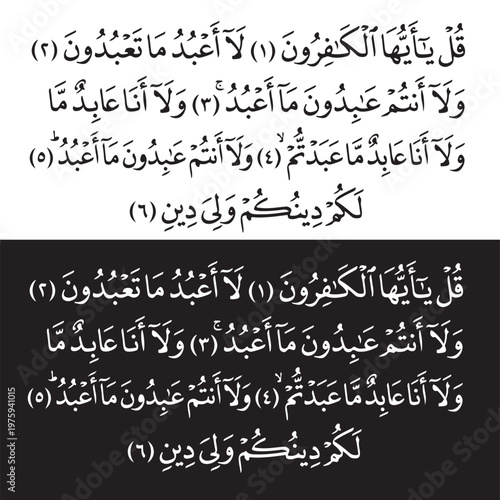 قُلْ يَٰٓأَيُّهَا ٱلْكَٰفِرُونَ (١) لَآ أَعْبُدُ مَا تَعْبُدُونَ (٢)
وَلَآ أَنتُمْ عَٰبِدُونَ مَآ أَعْبُدُ ۚ (٣) وَلَآ أَنَا عَابِدٌ مَّا
وَلَآ أَنَا عَابِدٌ مَّا عَبَدتُّمْ ۙ (٤) وَلَآ أَنتُمْ عَٰبِدُونَ مَآ أَعْبُدُ ؕ (٥)
لَكُمْ دِينُكُمْ وَلِىَ دِينِ (٦)
قُلْ يَٰٓأَيُّهَا ٱلْكَٰفِرُونَ (١) لَآ أَعْبُدُ مَا تَعْبُدُونَ (٢)
وَلَآ أَنتُمْ عَٰبِدُونَ مَآ أَعْبُدُ ۚ (٣) وَلَآ أَنَا عَابِدٌ مَّا
وَلَآ أَنَا عَابِدٌ مَّا عَبَدتُّمْ ۙ (٤) وَلَآ أَنتُمْ عَٰبِدُونَ مَآ أَعْبُدُ ؕ (٥)
لَكُمْ دِينُكُمْ وَلِىَ دِينِ (٦)
Adobe Stock | 1975941015